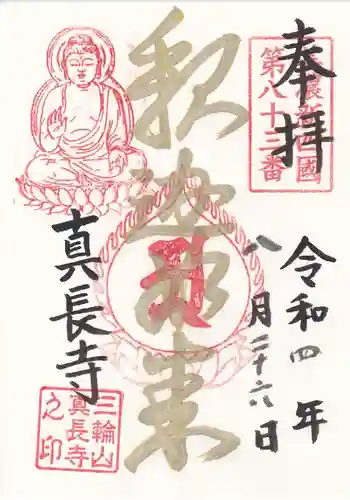 奉拝
美濃新四國
第八十三番
令和四年
八月二十六日
釈迦如来
真長寺
三輪山
真長寺
之印